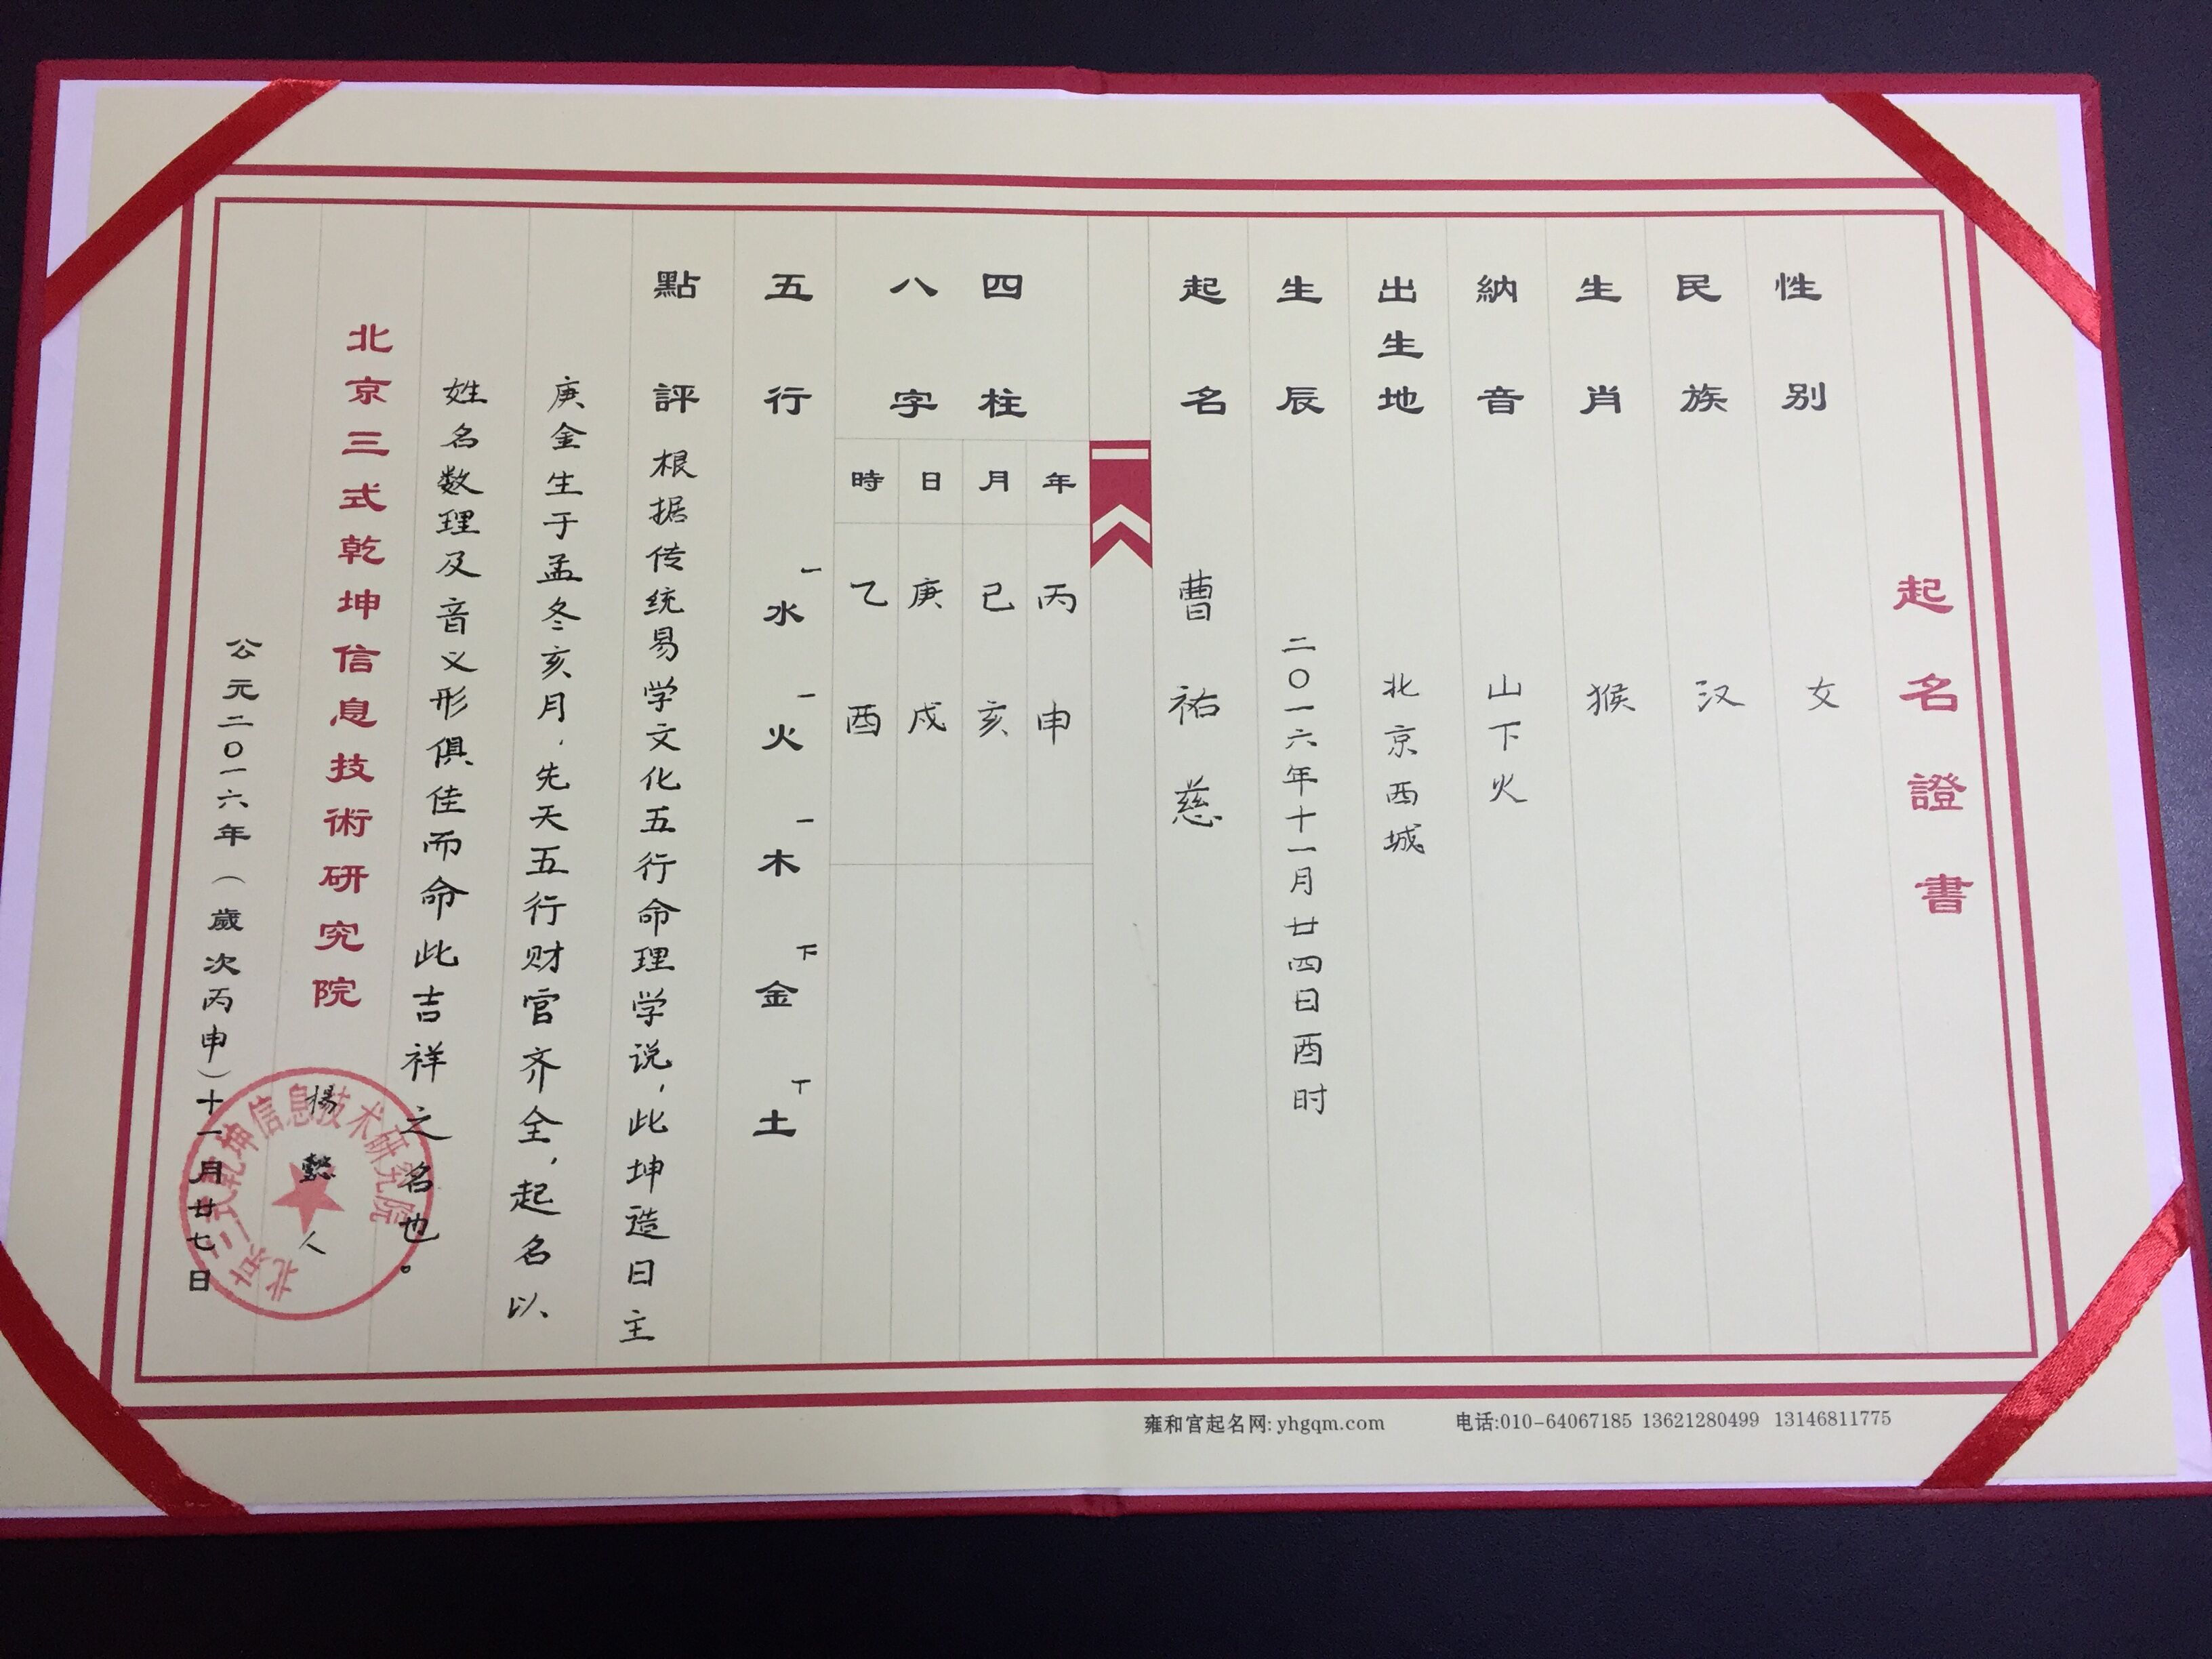 起名證書
性别 女
民族 汉
生肖 猴
納音 山下火
出生地 北京西城
生辰 二〇一六年十一月廿四日酉时
起名 曹祐慈
四柱
八字
年 丙申
月 己亥
日 庚戌
時 乙酉
五行 一水 一火 一木 下金 丅土
點評 根据传统易学文化五行命理学说，此坤造日主
庚金生于孟冬亥月，先天五行财官齐全，起名以
姓名数理及音义形俱佳而命此吉祥之名也。
北京三式乾坤信息技術研究院 人
公元二〇一六年（歲次丙申）十一月廿七日
北京三式乾坤信息技术研究院
雍和宫起名网: yhgqm.com 电话:010-64067185 13621280499 13146811775